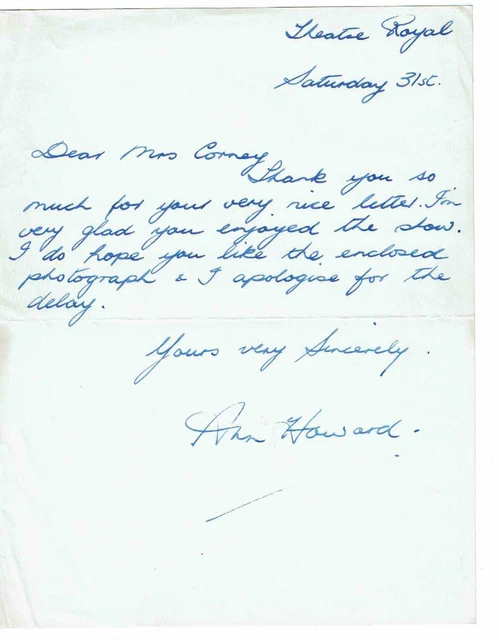 Theatre Royal
Saturday 31st.
Dear Mrs Corney
Thank you so
much for your very nice letter. I'm
very glad you enjoyed the show.
I do hope you like the enclosed
photograph & I apologise for the
delay.
Yours very Sincerely.
Ann Howard.